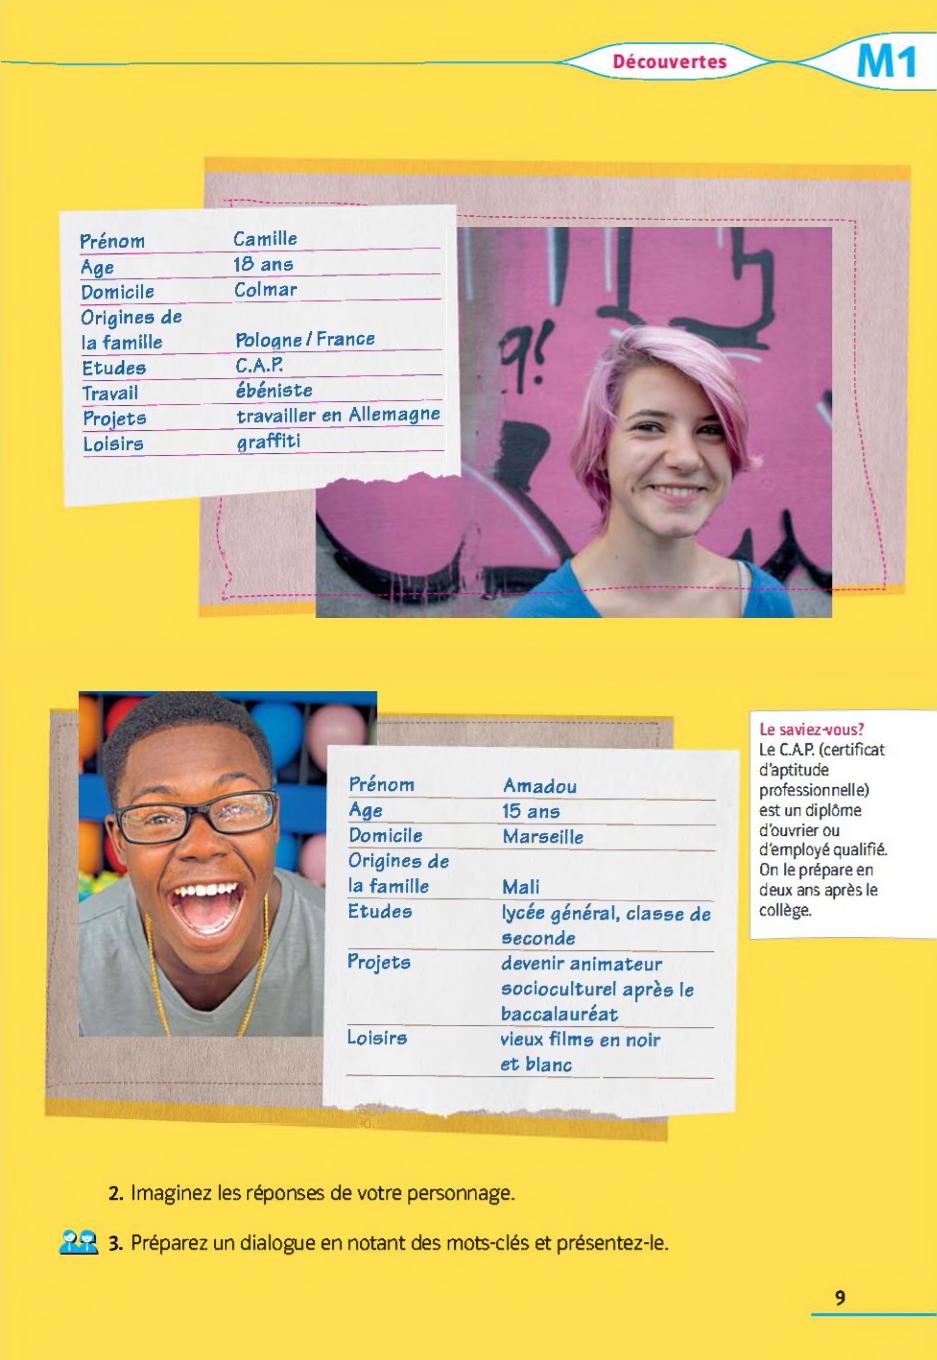 Découvertes
M1
Prénom Camille
Age 18 ans
Domicile Colmar
Origines de
la famille Pologne / France
Etudes C.A.P.
Travail ébéniste
Projets travailler en Allemagne
Loisirs graffiti
9!
Prénom Amadou
Age 15 ans
Domicile Marseille
Origines de
la famille Mali
Etudes lycée général, classe de
seconde
Projets devenir animateur
socioculturel après le
baccalauréat
Loisirs vieux films en noir
et blanc
Le saviez-vous?
Le C.A.P. (certificat
d'aptitude
professionnelle)
est un diplôme
d'ouvrier ou
d'employé qualifié.
On le prépare en
deux ans après le
collège.
2. Imaginez les réponses de votre personnage.
3. Préparez un dialogue en notant des mots-clés et présentez-le.
9